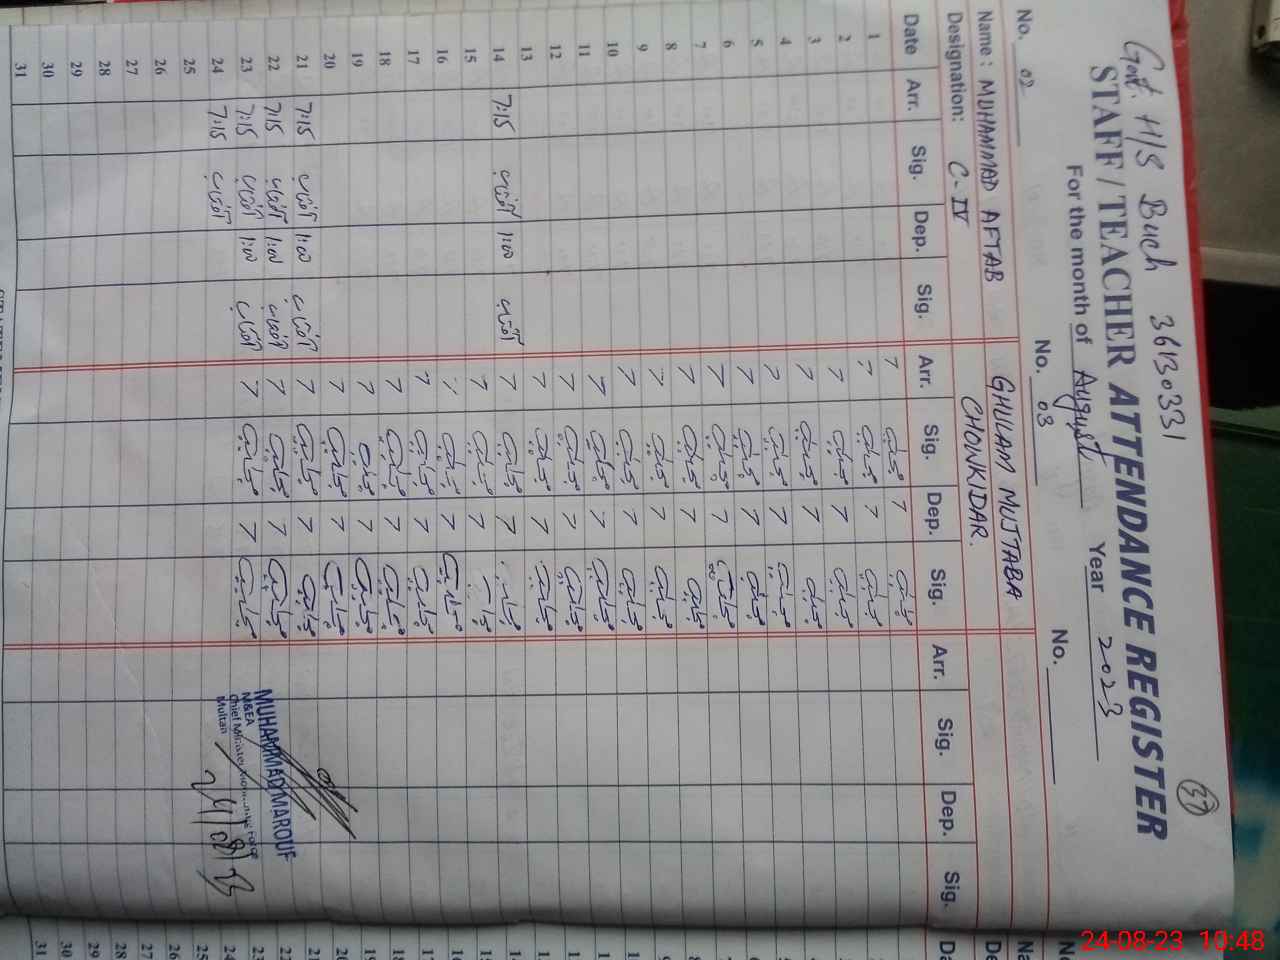 (37)
Govt. H/S Buch 36130331
STAFF / TEACHER ATTENDANCE REGISTER
For the month of August Year 2023
No. 02 No. 03 No.
Name: MUHAMMAD AFTAB GHULAM MUJTABA
Designation: C-IV CHOWKIDAR.
Date Arr. Sig. Dep. Sig. Arr. Sig. Dep. Sig. Arr. Sig. Dep. Sig.
1 7 7
2 7 7
3 7 7
4 7 7
5 7 7
6 7 7
7 7 7
8 7 7
9 7 7
10 7 7
11 7 7
12 7 7
13 7 7
14 7:15 آفتاب 1:00 آفتاب 7 7
15 7 7
16 7 7
17 7 7
18 7 7
19 7 7
20 7 7
21 7:15 آفتاب 1:00 آفتاب 7 7
22 7:15 آفتاب 1:00 آفتاب 7 7
23 7:15 آفتاب 1:00 آفتاب 7 7
24 7:15 آفتاب
25
26
27
28
29
30
31
MUHAMMAD MAROUF
M&EA
Chief Minister Monitoring Force
Multan
24/08/23
24-08-23 10:48